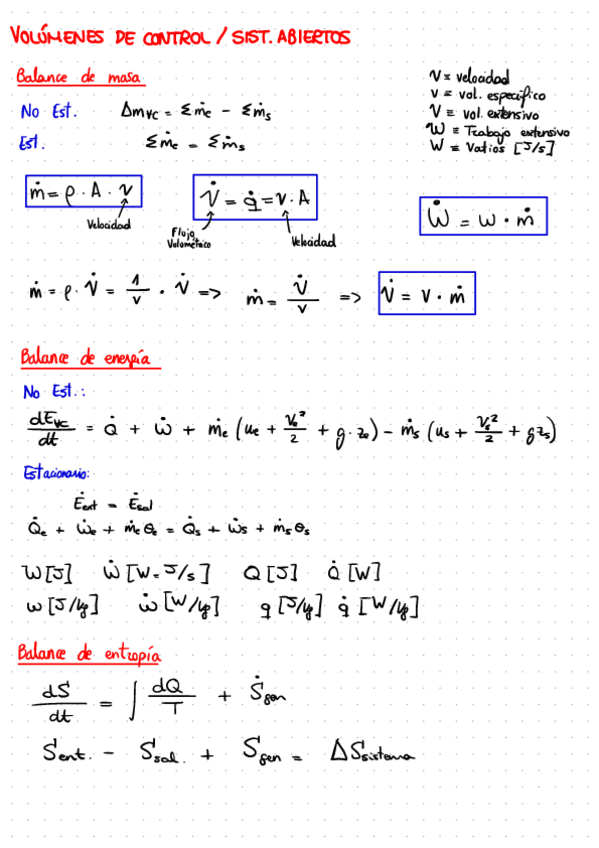 VOLÚMENES DE CONTROL / SIST. ABIERTOS
Balance de masa
V ≡ velocidad
v ≡ vol. específico
V ≡ vol. extensivo
W ≡ Trabajo extensivo
W ≡ Vatios [J/s]
No Est. Δm_VC = Σṁe - Σṁs
Est. Σṁe = Σṁs
ṁ = ρ · A · v
Velocidad
V̇ = q̇ = v · A
Flujo Volumétrico
Velocidad
Ẇ = w · ṁ
ṁ = ρ · V̇ = 1/v · V̇ => ṁ = V̇/v => V̇ = v · ṁ
Balance de energía
No Est.:
dE_VC/dt = Q̇ + Ẇ + ṁe (ue + Ve²/2 + g · ze) - ṁs (us + Vs²/2 + g zs)
Estacionario:
Ėent = Ėsal
Q̇e + Ẇe + ṁe θe = Q̇s + Ẇs + ṁs θs
W [J] Ẇ [W = J/s] Q [J] Q̇ [W]
w [J/kg] ẇ [W/kg] q [J/kg] q̇ [W/kg]
Balance de entropía
dS/dt = ∫ dQ/T + Ṡgen
Sent. - Ssal. + Sgen = ΔSsistema